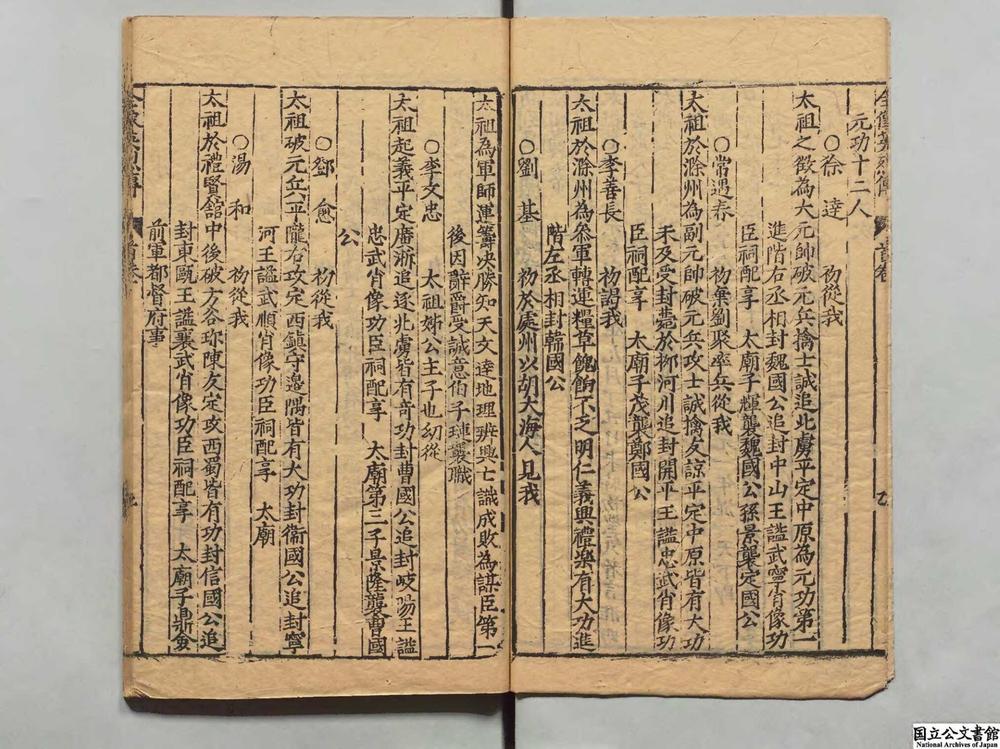 元功十二人
○徐 逹 初從我
太祖之徵為大元帥破元兵擒士誠追北虜平定中原為元功第一
進階右丞相封魏國公追封中山王謚武寧肖像功
臣祠配享 太廟子輝襲魏國公孫景襲定國公
○常遇春 初棄劉聚率兵從我
太祖於滁州為副元帥破元兵攻士誠擒友諒平定中原皆有大功
未及受封薨於柳河川追封開平王謚忠武肖像功
臣祠配享 太廟子茂襲鄭國公
○李善長 初謁我
太祖於滁州為叅軍轉運糧草餽餉不乏明仁義興禮樂有大功進
階左丞相封韓國公
○劉 基 初於處州以胡大海人見我
太祖為軍師運籌决勝知天文逹地理辨興亡識成敗為謀臣第一
後因辭爵受誠意伯子璉襲職
○李文忠 太祖姊公主子也幼從
太祖起義平定唐浙追逐北虜皆有竒功封曹國公追封岐陽王謚
忠武肖像功臣祠配享 太廟第三子景隆襲曹國
公
○鄧 愈 初從我
太祖破元兵平隴右攻定西鎮守邊隅皆有大功封衞國公追封寧
河王謚武順肖像功臣祠配享 太廟
○湯 和 初從我
太祖於禮賢舘中後破方谷珎陳友定攻西蜀皆有功封信國公追
封東甌王謚襄武肖像功臣祠配享 太廟子鼎僉
前軍都督府事
国立公文書館
National Archives of Japan